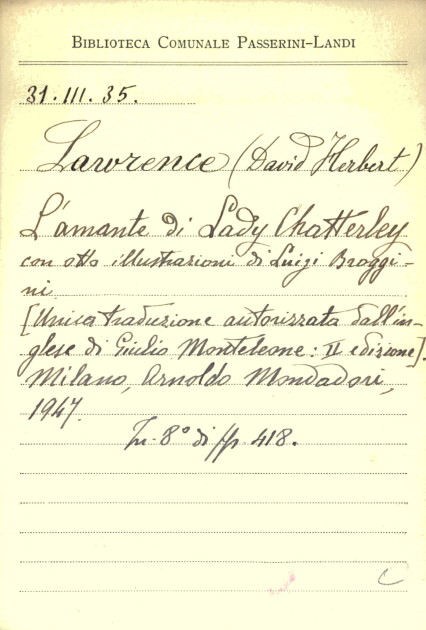 BIBLIOTECA COMUNALE PASSERINI-LANDI
31.III.35.
Lawrence (David Herbert)
L'amante di Lady Chatterley
con otto illustrazioni di Luigi Broggi-
ni
[Unica traduzione autorizzata dall'in-
glese di Giulio Monteleone: II edizione].
Milano, Arnoldo Mondadori,
1947.
In-8° di pp. 418.
C